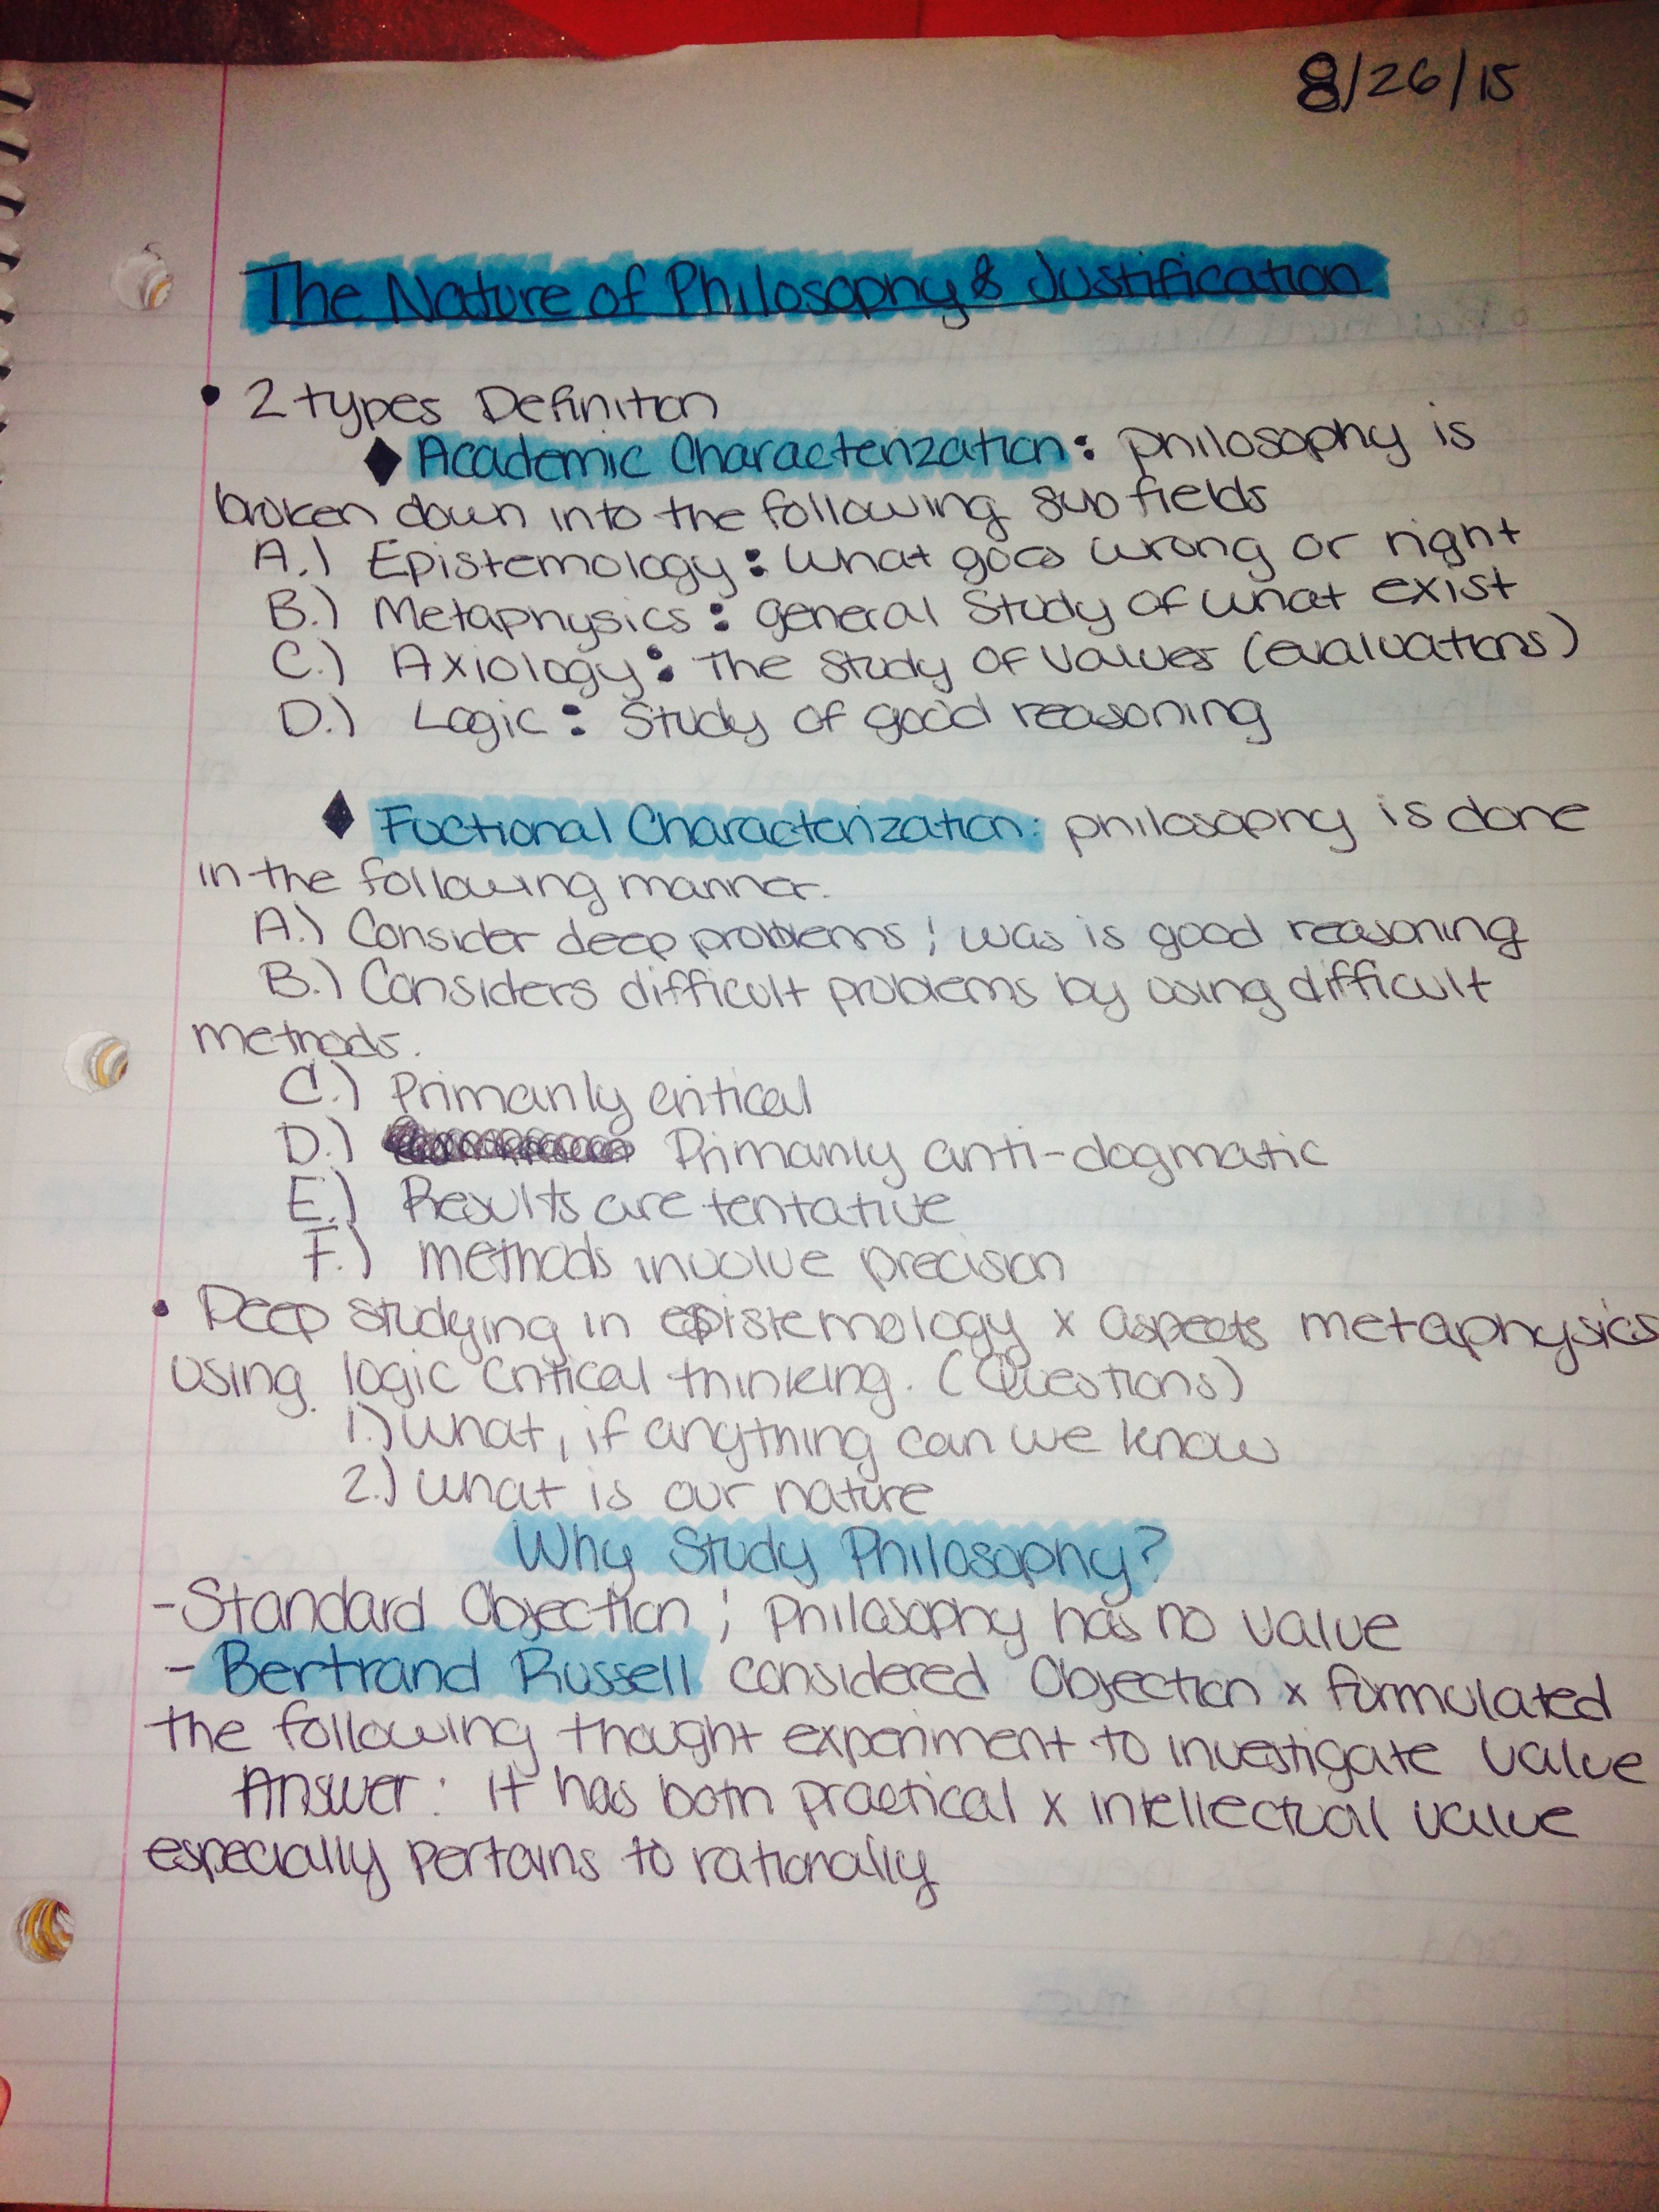 8/26/15
The Nature of Philosophy & Justification
• 2 types Definition
◆ Academic Characterization: philosophy is
broken down into the following sub fields
A.) Epistemology: What goes wrong or right
B.) Metaphysics: general Study of what exist
C.) Axiology: The Study of Values (evaluations)
D.) Logic: Study of good reasoning
◆ Fuctional Characterization: philosophy is done
in the following manner.
A.) Consider deep problems; was is good reasoning
B.) Considers difficult problems by using difficult
methods.
C.) Primarily critical
D.) Primarily anti-dogmatic
E.) Results are tentative
F.) methods involve precision
• Deep studying in epistemology x aspects metaphysics
using logic critical thinking. (Questions)
1.) What, if anything can we know
2.) What is our nature
Why Study Philosophy?
- Standard Objection; Philosophy has no value
- Bertrand Russell considered Objection x formulated
the following thought experiment to investigate value
Answer: it has both practical x intellectual value
especially pertains to rationally